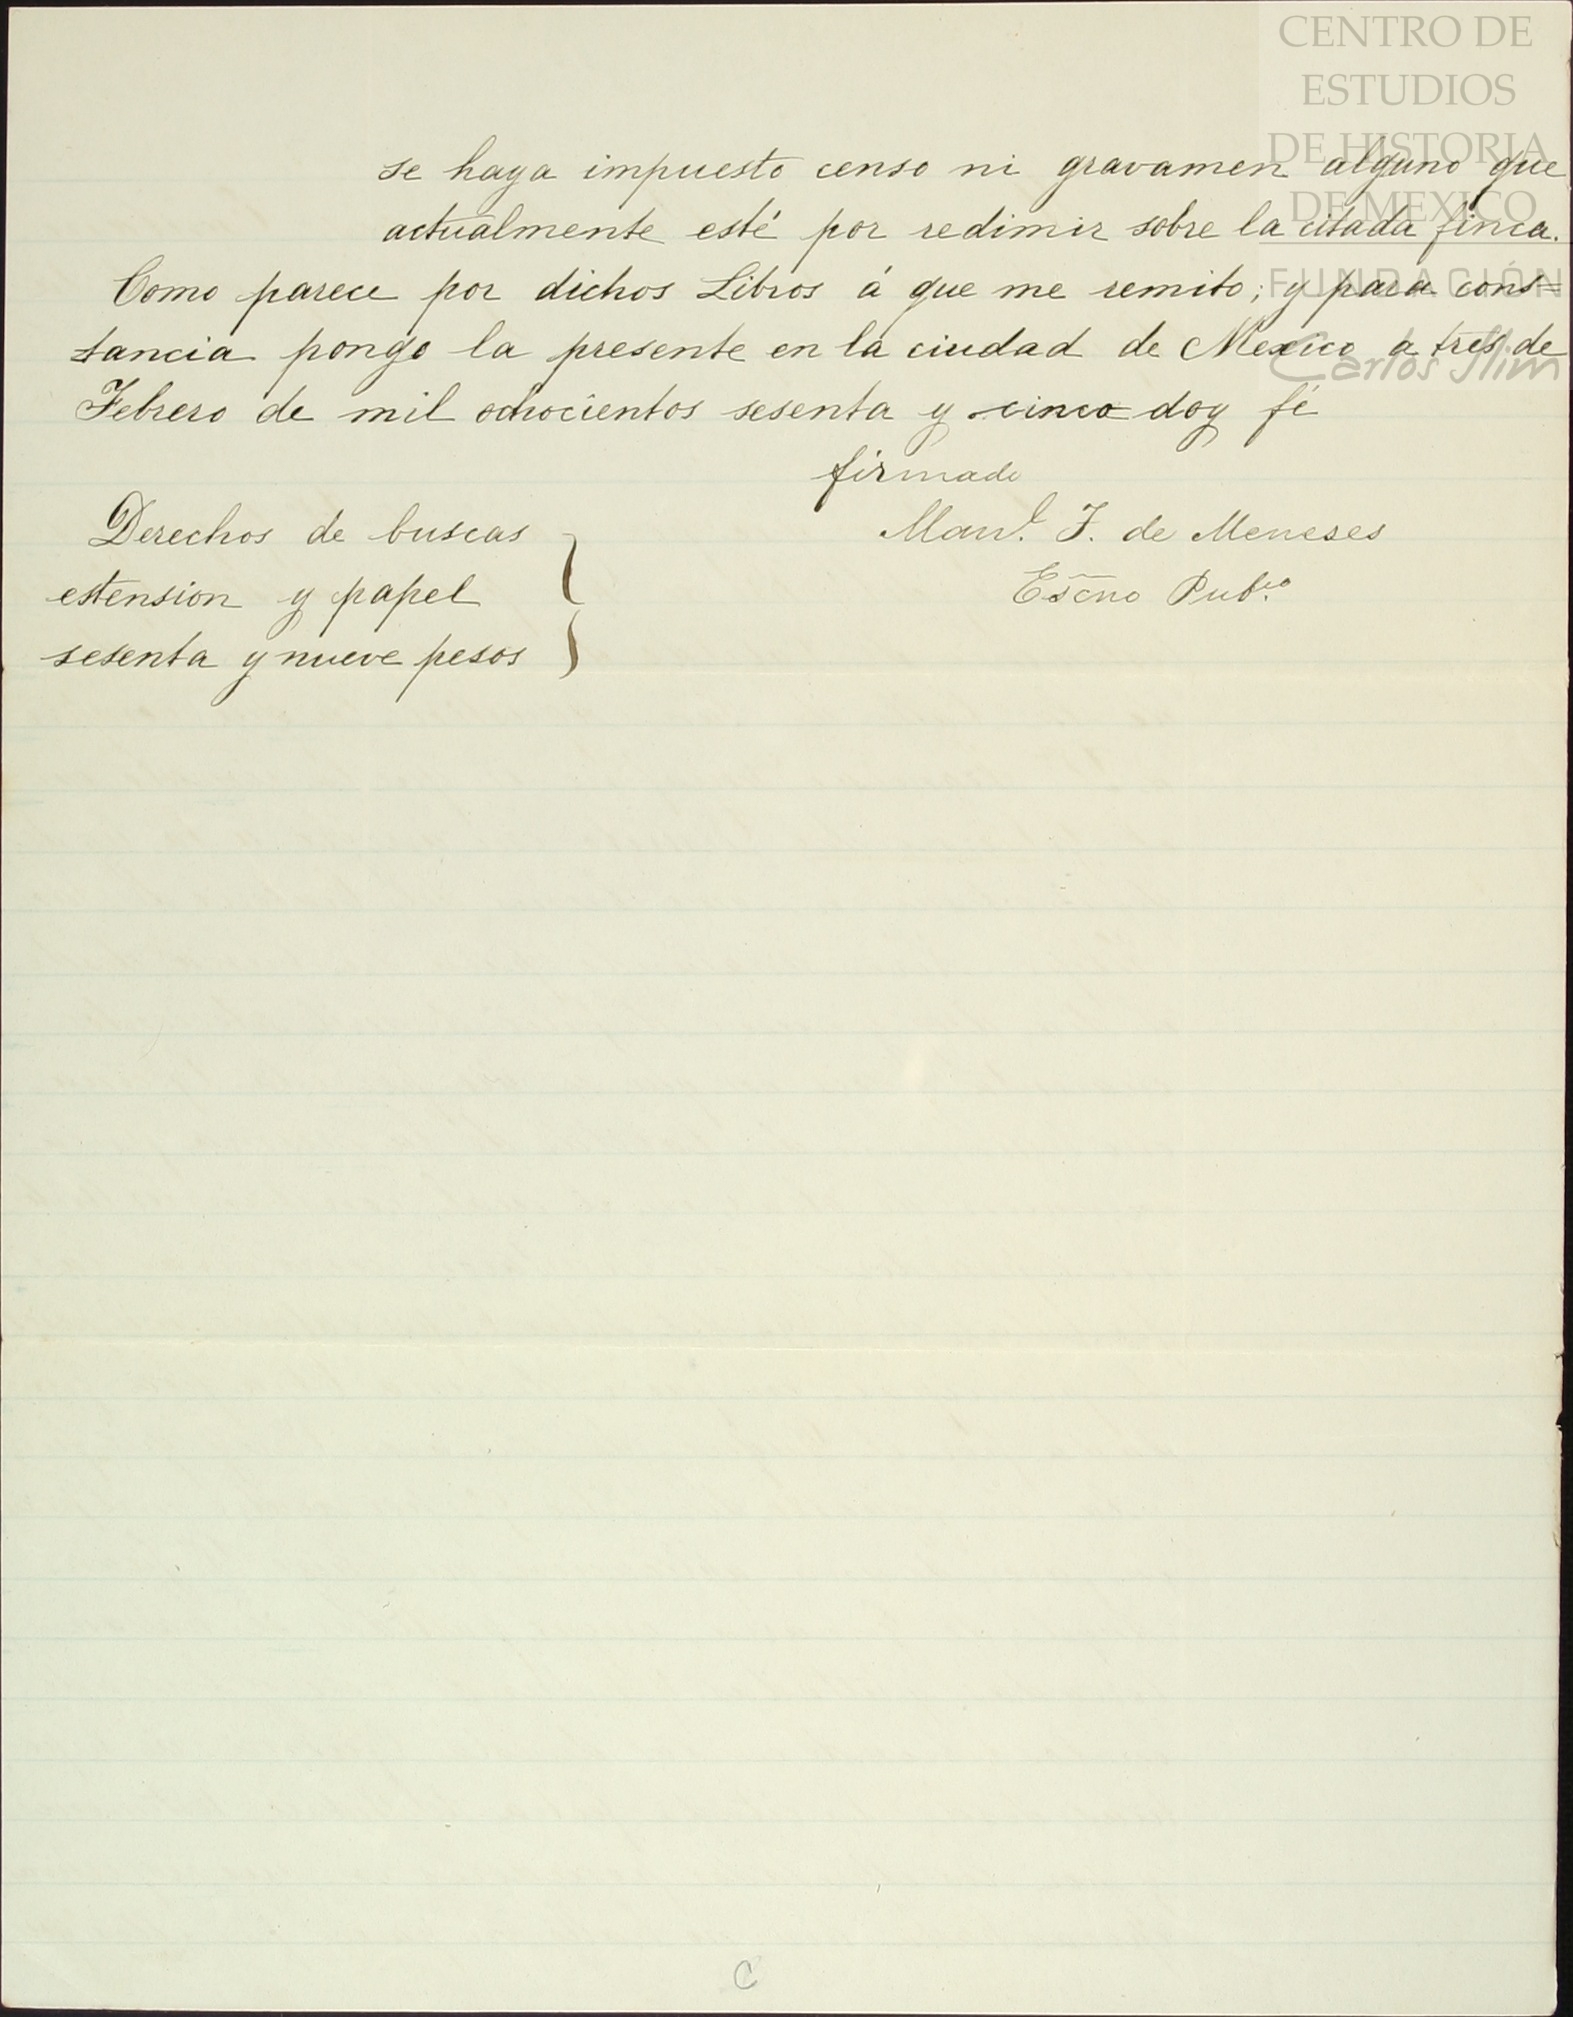 CENTRO DE
ESTUDIOS
DE HISTORIA
DE MEXICO
FUNDACIÓN
Carlos Slim
se haya impuesto censo ni gravamen alguno que
actualmente esté por redimir sobre la citada finca.
Como parece por dichos Libros á que me remito; y para cons=
tancia pongo la presente en la ciudad de Mexico a tres de
Febrero de mil ochocientos sesenta y cinco doy fé
firmado
Derechos de buscas
Manl. F. de Meneses
estension y papel
Esc̃no Pubco.
sesenta y nueve pesos
C